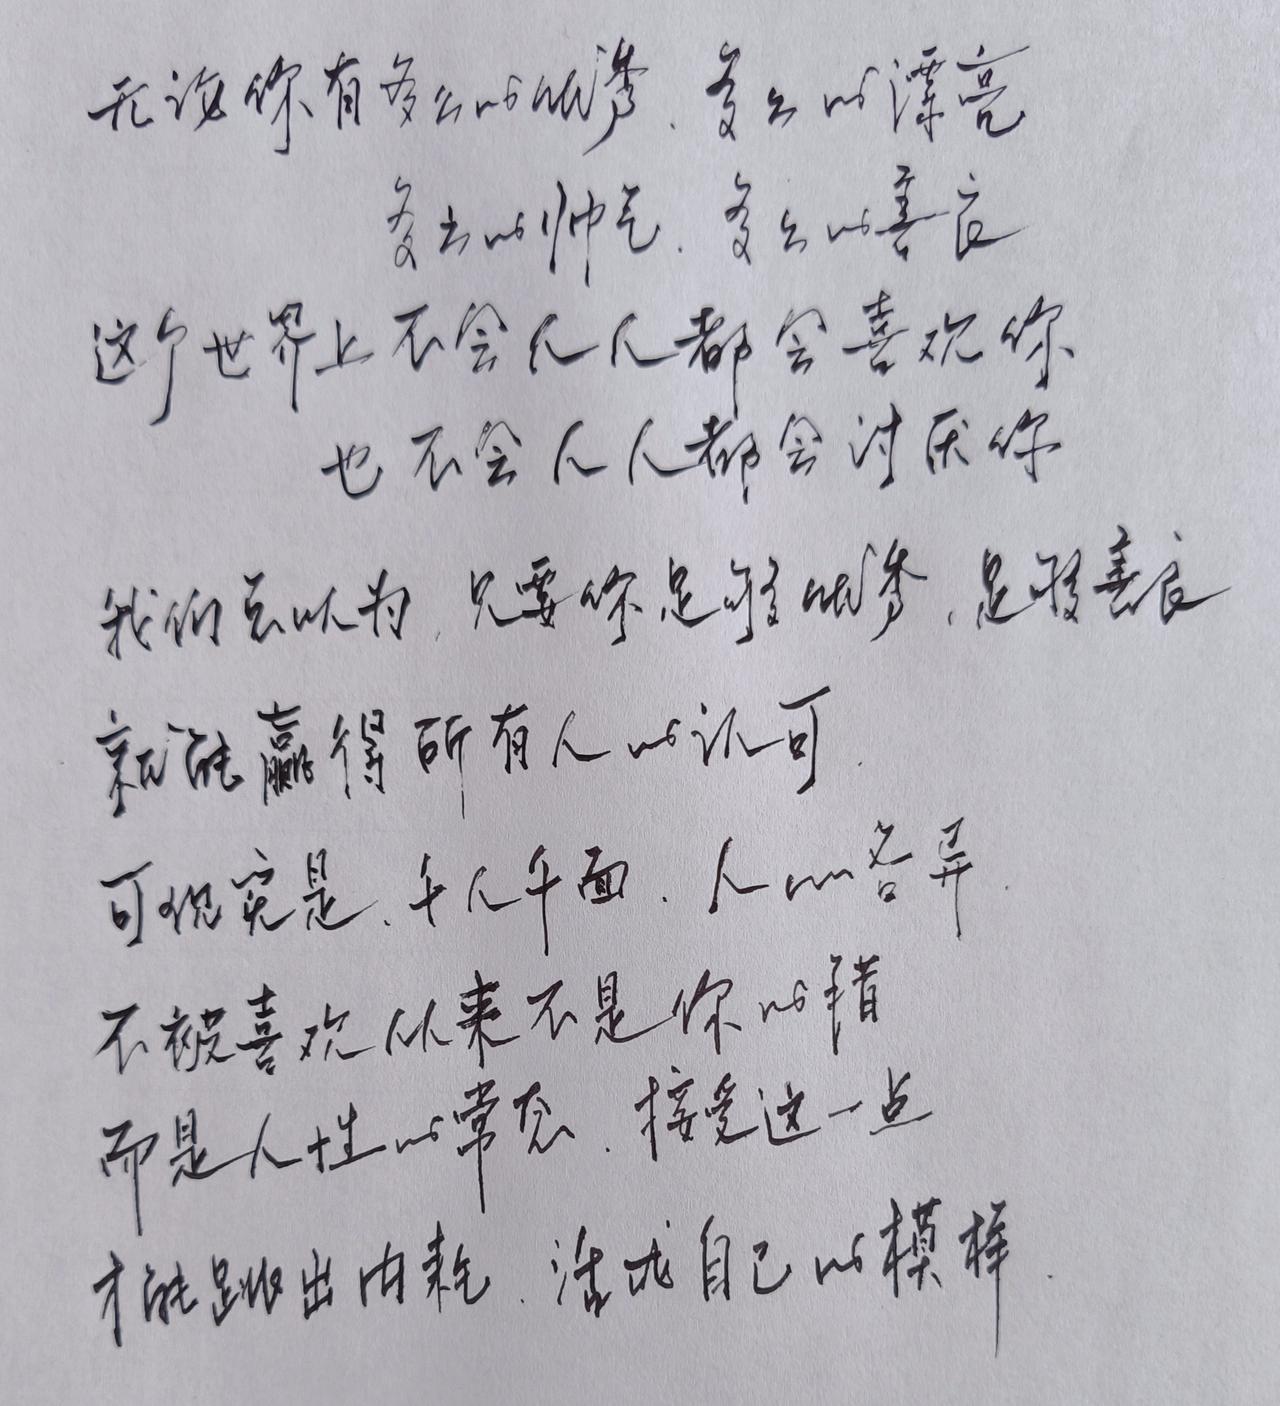 无论你有多么的优秀、多么的漂亮
多么的帅气、多么的善良
这个世界上不会人人都会喜欢你
也不会人人都会讨厌你
我们总以为,只要你足够优秀,足够善良
就能赢得所有人的认可.
可现实是、千人千面、人心各异.
不被喜欢从来不是你的错
而是人性的常态、接受这一点
才能跳出内耗、活成自己的模样.